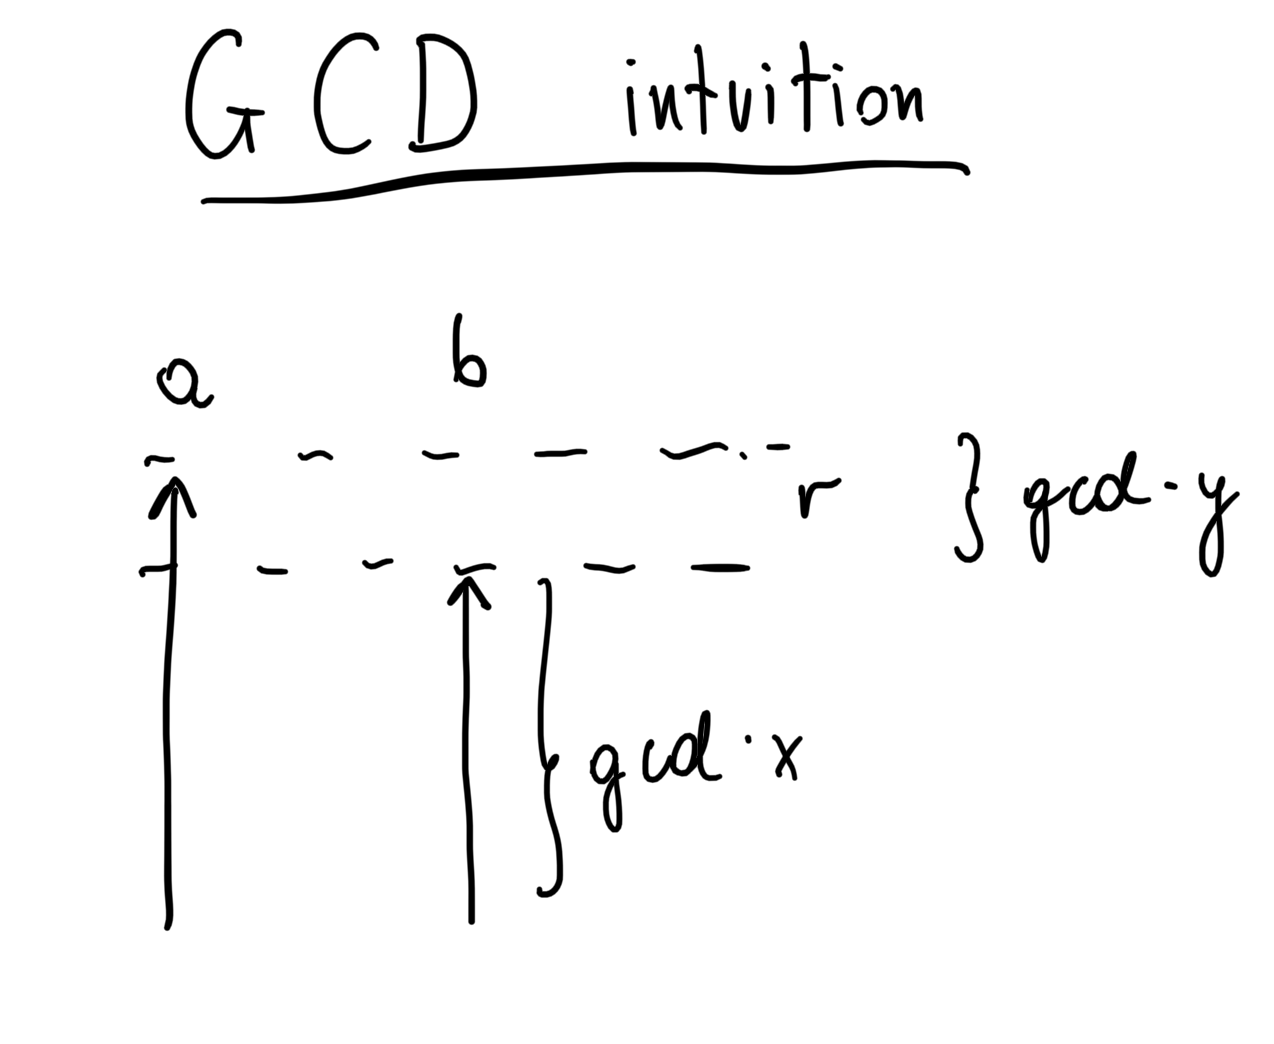 GCD intuition
a b
r } gcd · y
} gcd · x